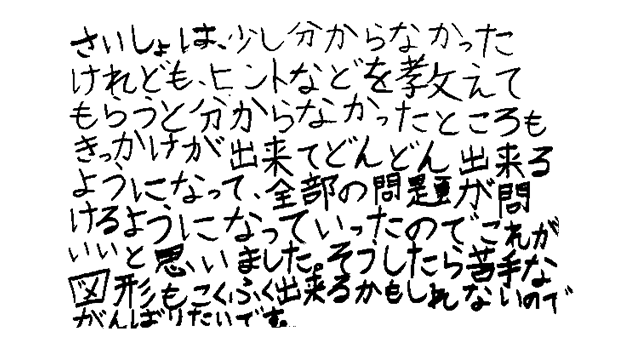 さいしょは、少し分からなかった
けれども、ヒントなどを教えて
もらうと分からなかったところも
きっかけが出来てどんどん出来る
ようになって、全部の問題が問
けるようになっていったのでこれが
いいと思いました。そうしたら苦手な
図形もこくふく出来るかもしれないので
がんばりたいです。